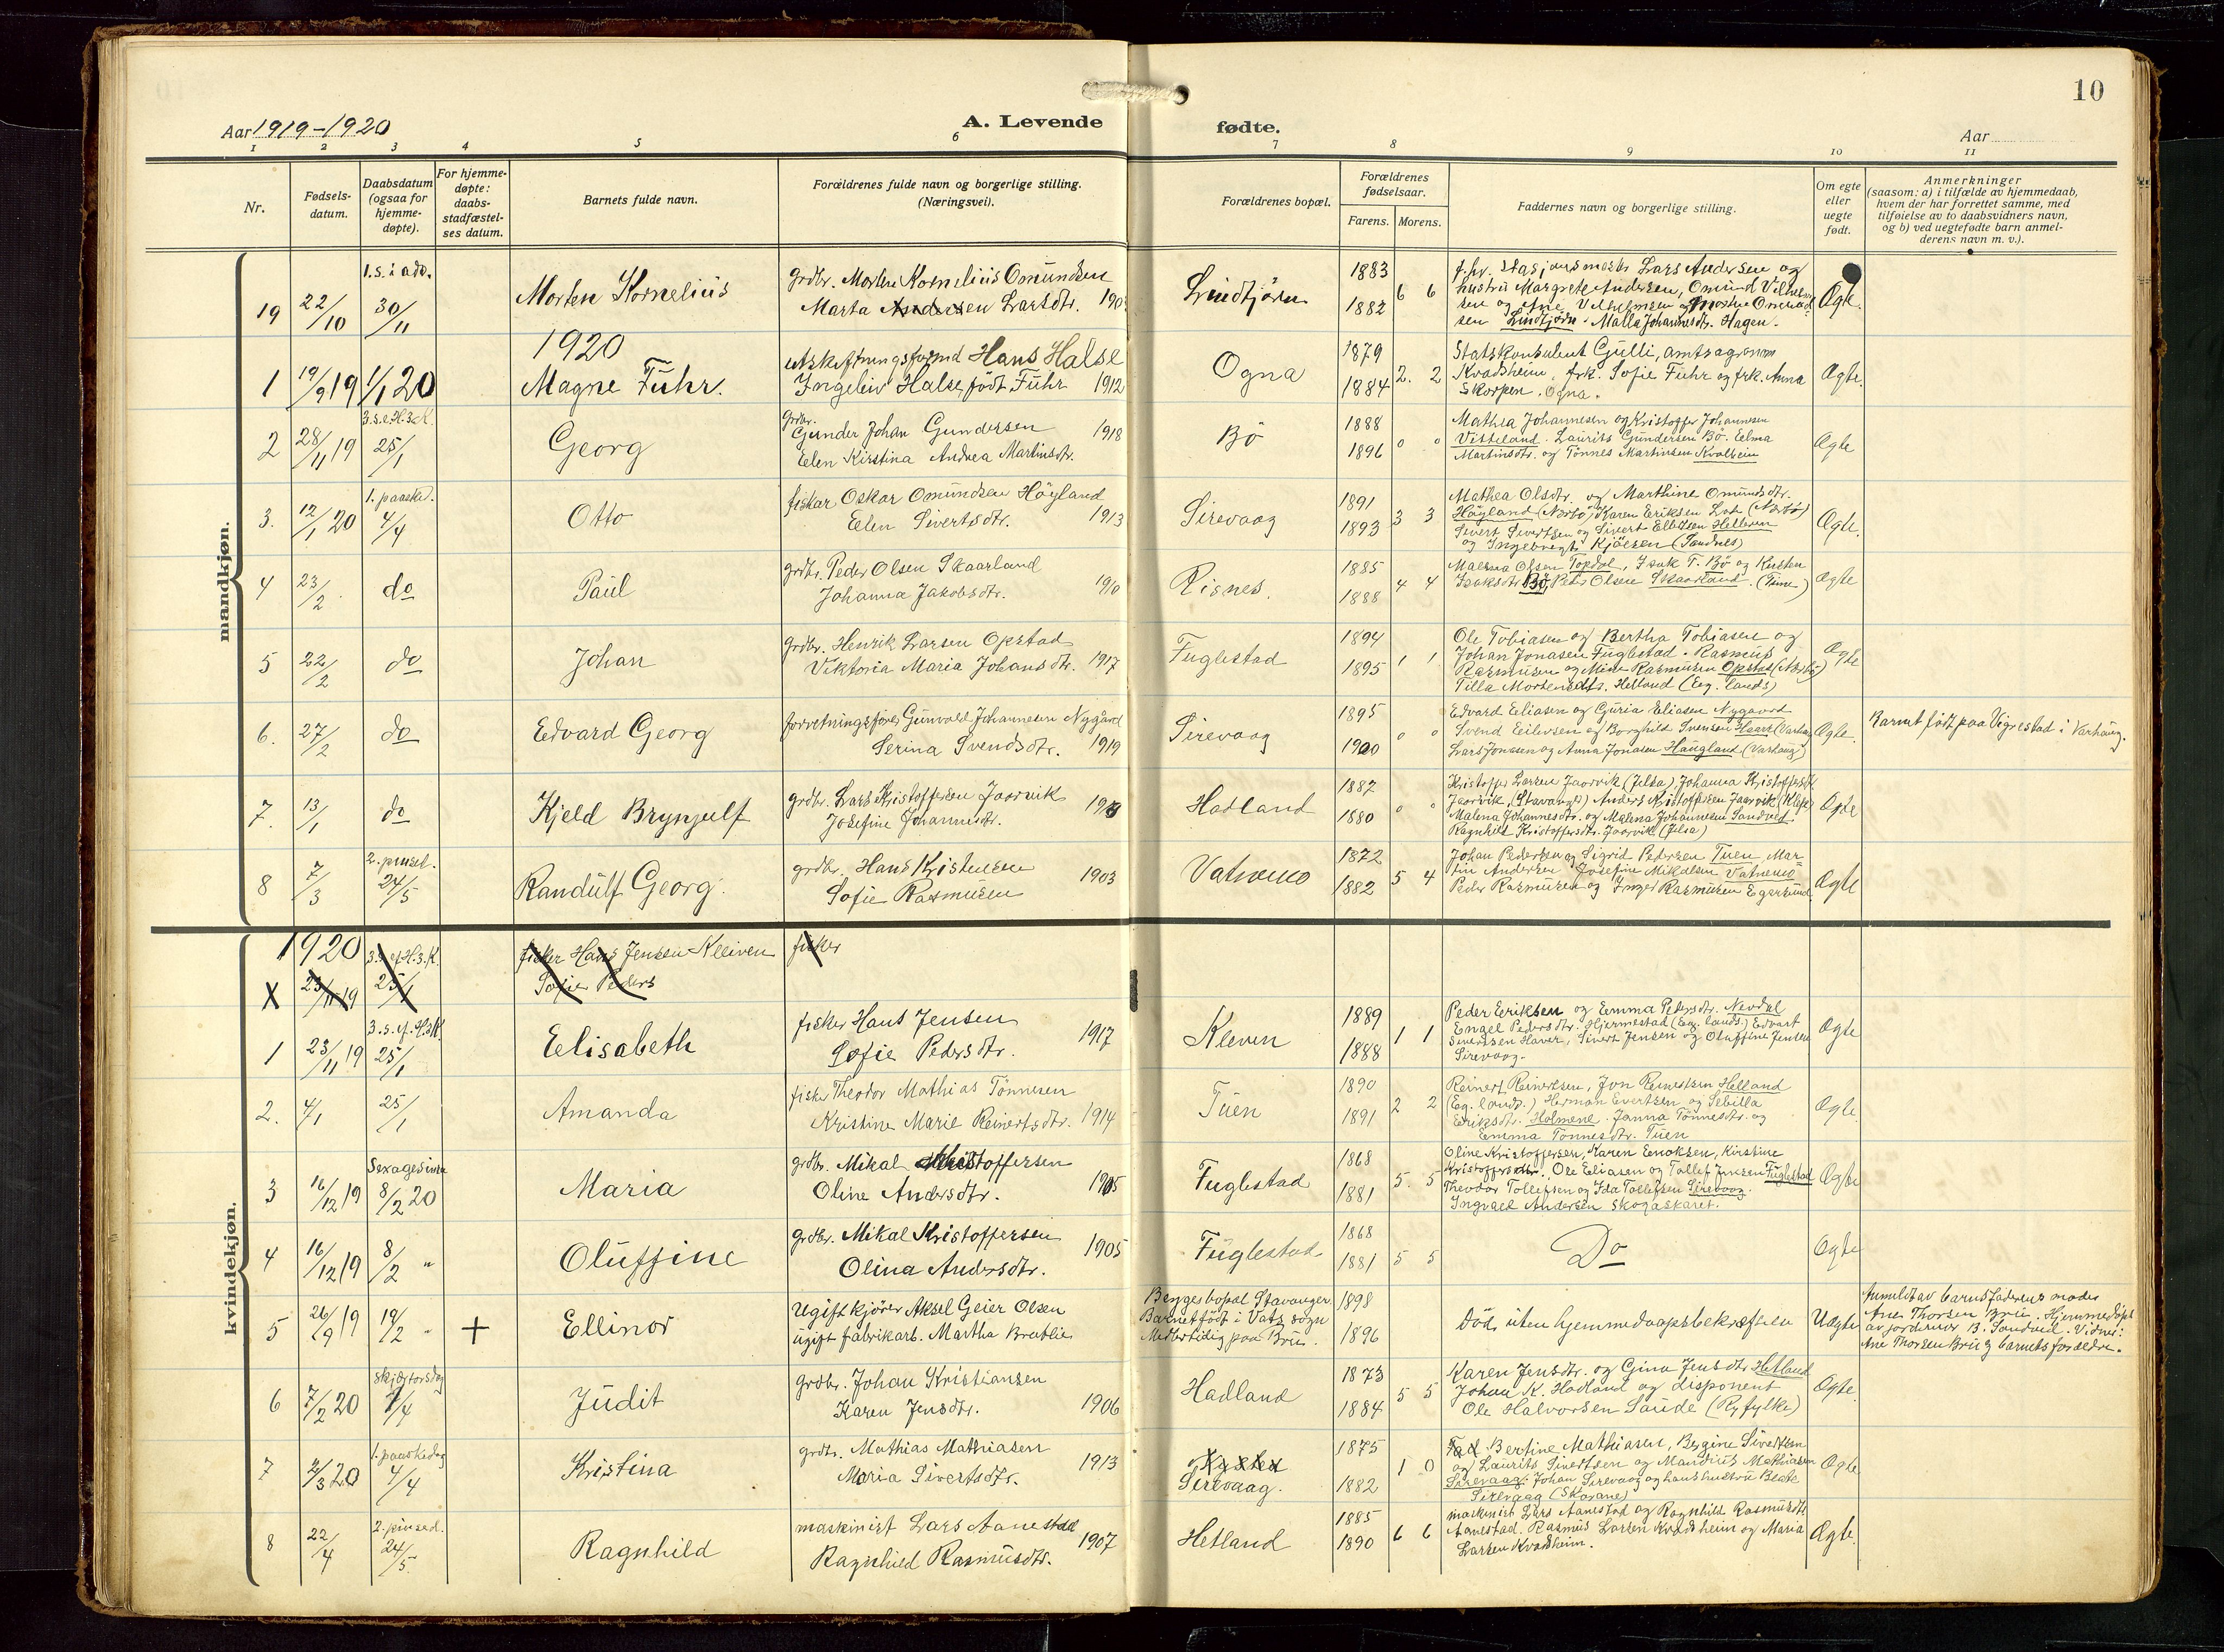 10
Aar 1919-1920
A. Levende
fødte.
Aar
1 2 3 4 5 6 7 8 9 10 11
Nr.
Fødsels-
datum.
Daabsdatum
(ogsaa for
hjemme-
døpte).
For hjemme-
døpte:
daabs-
stadfæstel-
ses datum.
Barnets fulde navn.
Forældrenes fulde navn og borgerlige stilling.
(Næringsvei).
Forældrenes bopæl.
Forældrenes
fødselsaar.
Farens. Morens.
Faddernes navn og borgerlige stilling.
Om egte
eller
uegte
født.
Anmerkninger
(saasom: a) i tilfælde av hjemmedaab,
hvem der har forrettet samme, med
tilføielse av to daabsvidners navn,
og b) ved uegtefødte barn anmel-
derens navn m. v.).
mandkjøn.
19 22/10 1.s. i adv. 30/11
Morten Kornelius
grdbr. Morten Kornelius Omundsen
Marta Andersen Larsdtr.
Lindtjörn
1883
1882
6 6
f. hv. stasjonsmester Lars Andersen og
hustru Margrete Andersen, Omund Vilhelm
sen og Ane Vilhelmsen og Morten Omund
sen Lindtjörn. Malla Johannesdtr. Hagen.
Ægte.
1920
1 19/9 19 1/1 20
Magne Fuhr.
utskiftningsformd Hans Halse
Ingeleiv Halse, født Fuhr 1912
Ogna
1879
1884
2. 2
Statskonsulent Gjulli, amtsagronom
Kvadsheim, frk. Sofie Fuhr og frk. Anna
Skorpen. Ogna.
Ægte.
2 28/11 19 3.s.e.H.3.K. 25/1
Georg
grdbr.
Gunder Johan Gundersen 1918
Elen Kirstina Andrea Martinsdtr.
Bö
1888
1896
0 0
Mathea Johannesen og Kristoffer Johannesen
Vitteland. Laurits Gundersen Bö. Elma
Martinsdtr. og Tönnes Martinsen Kvalbein
Ægte
3. 12/1 20 1. paasked. 4/4
Otto
fiskar Oskar Omundsen Höyland
Elen Sivertsdtr. 1913
Sirevaag
1891
1893
3 3
Mathea Olsdtr. og Marthine Omundsdtr.
Höyland (Nærbö) Karen Eriksen Lot (Nærbö)
Sivert Sivertsen og Sivert Ellefsen Helleren
og Ingebregt Kjölsen (Sandnes)
Ægte.
4 23/2 do
Paul
grdbr. Peder Olsen Skaarland
Johanna Jakobsdtr. 1910
Risnes.
1885
1888
4 4
Malena Olsen Topdal, Isak T. Bö og Kirsten
Isaksdtr Bö, Peder Olsen Skaarland. (Time)
Ægte
5 22/2 do
Johan
grdbr. Henrik Larsen Opstad
Viktoria Maria Johansdtr. 1917
Fuglestad
1894
1895
1 1
Ole Tobiasen og Bertha Tobiasen og
Johan Jonasen Fuglestad. Rasmus
Rasmusen og Mine Rasmusen Opstad (Nærbö)
Tilla Mortensdtr. Helland (Eg. lands)
Ægte
6. 27/2 do
Edvard Georg
forretningsfører Gunvald Johannesen Nygård
Serina Svendsdtr. 1919
Sirevaag
1895
1900
0 0
Edvard Eliasen og Guria Eliasen Nygaard
Svend Eilevsen og Borghild Svensen Haar (Varhaug)
Lars Jonsen og Anna Jonasen Haugland (Varhaug)
Ægte.
Barnet født paa Vigrestad i Varhaug.
7. 13/1 do
Kjeld Brynjulf
grdbr. Lars Kristoffersen Jaarvik
Josefine Johannesdtr.
Hadland
1887
1880
0 0
Kristoffer Larsen Jaarvik (Jelsa), Johanna Kristoffersdtr
Jaarvik, (Stavanger) Anders Kristoffersen Jaarvik (Klep)
Malena Johannesdtr. og Malena Johannesen Sandved
Ragnhild Kristoffersdtr. Jaarvik (Jelsa)
Ægte
8 7/3 2. pinsed. 24/5
Randulf Georg.
grdbr. Hans Kristensen 1903
Sofie Rasmusen
Vatnemo
1872
1882
5 4
Johan Pedersen og Sigrid Pedersen Tuen Mar-
tin Andersen Josefine Mikalsen Vatnemo
Peder Rasmusen og Inger Rasmusen Egersund
Ægte
kvindekjøn.
1920
X 23/11 19 3.s. ef. H.3.K. 25/1
fisker Hans Jensen Kleiven
Sofie Peders
fisker
1 23/11 19 3.s. ef. H.3.K. 25/1
Elisabeth
fisker Hans Jensen 1917
Sofie Pedersdtr.
Kleven
1889
1888
1 1
Peder Eriksen og Emma Pedersdtr. Nevdal
Engel Pedersdtr. Hjermestad (Eg. lands.) Edvart
Sivertsen Haver, Sivert Jensen og Oluffine Jensen
Sirevaag.
Ægte
2. 4/1 25/1
Amanda
fisker Theodor Mathias Tönnesen
Kristine Marie Reinertsdtr. 1914
Tuen
1890
1891
2 2
Reinert Reinertsen, Jon Reinertsen Helland
(Eg. lands.) Herman Evertsen og Sebilla
Eriksdtr. Holmene. Janna Tönnesdtr. og
Emma Tönnesdtr. Tuen
Ægte.
3 16/12 19 Sexagesima 8/2 20
Maria
grdbr. Mikal Kristoffersen
Oline Andersdtr. 1905
Fuglestad
1868
1881
5. 5
Oline Kristoffersen, Karen Enoksen, Kirstine
Kristoffersdtr. Ole Eliasen og Tollef Jensen Fuglestad
Theodor Tollefsen og Ida Tollefsen Sirevaag.
Ingvald Andersen Skogaskaret.
Ægte
4 16/12 19 8/2 "
Oluffine
grdbr. Mikal Kristoffersen 1905
Olina Andersdtr.
Fuglestad
1868
1881
5 5
Do
Ægte
5 26/9 19 14/2 " +
Ellinor
Ugift kjører Aksel Geier Olsen
ugift fabrikarb. Martha Bratlie
Begges bopæl Stavanger.
Barnet født i Vats sogn
Midlertidig paa Bru.
1898
1896
Död, uten hjemmedaapsbekræftelse
Uægte
Anmeldt av barnefaderens moder
Ane Thorsen Bru. Hjemmedöpt
av jordmor B. Sandved. Vidner:
Ane Thorsen Bru og barnets forældre.
6 7/2 20 skjærtorsdag 1/4
Judit
grdbr. Johan Kristiansen
Karen Jensdtr. 1906
Hadland
1873
1884
5 5
Karen Jensdtr. og Gina Jensdtr Hetland
Johan K. Hadland og disponent
Ole Halvorsen Saude (Ryfylke)
Ægte.
7 2/3 20 1. paaskedag 4/4
Kristina
grdbr. Mathias Mathiasen 1913
Maria Sivertsdtr.
Sirevaag.
1875
1882
1 0
Bertine Mathiasen, Bergine Sivertsen
og Laurits Sivertsen og Mandius Mathiasen
Sirevaag. Johan Sirevaag og hans hustru Beate
Sirevaag (Skarane)
Ægte
8 22/4 2. pinsed. 24/5.
Ragnhild
maskinist Lars Aanestad 1907
Ragnhild Rasmusdtr.
Hetland
1885
1890
6 6
maskinist Lars Aanestad og Ragnhild Rasmusdtr
Aanestad. Rasmus Larsen Kvadsheim og Maria
Larsen Kvadsheim.
Ægte.